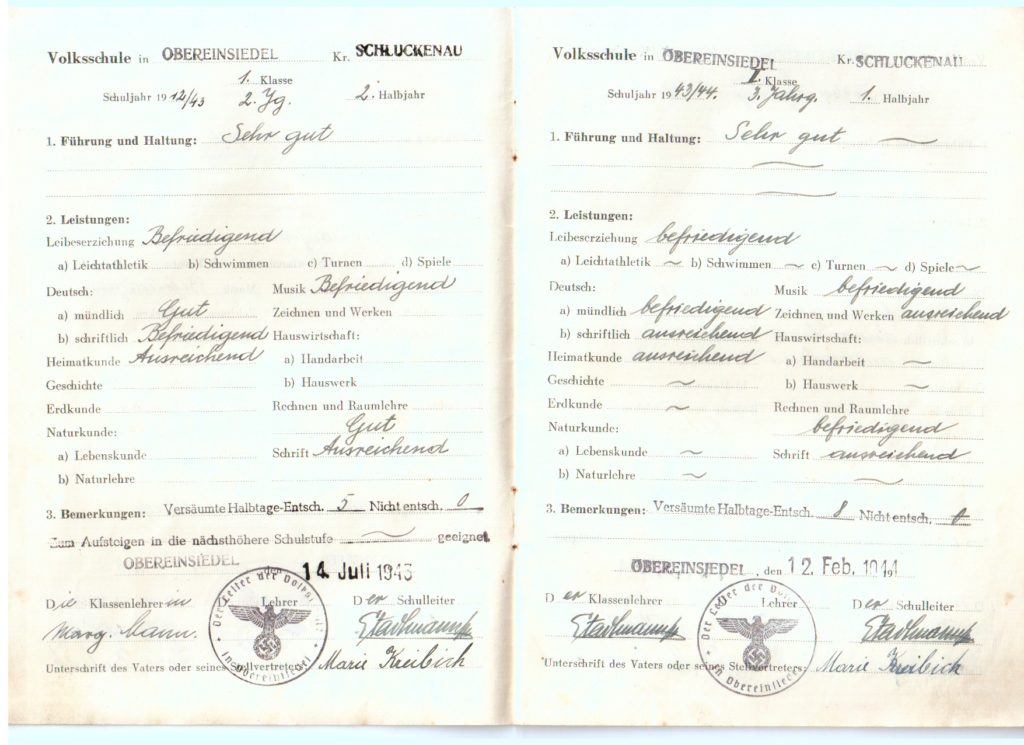 Volksschule in OBEREINSIEDEL Kr. SCHLUCKENAU
1. Klasse
Schuljahr 1942/43 2. Jg. 2. Halbjahr
1. Führung und Haltung: Sehr gut
2. Leistungen:
Leibeserziehung Befriedigend
a) Leichtathletik b) Schwimmen c) Turnen d) Spiele
Deutsch: Musik Befriedigend
a) mündlich Gut Zeichnen und Werken
b) schriftlich Befriedigend Hauswirtschaft:
Heimatkunde Ausreichend a) Handarbeit
Geschichte b) Hauswerk
Erdkunde Rechnen und Raumlehre
Naturkunde: Gut
a) Lebenskunde Schrift Ausreichend
b) Naturlehre
3. Bemerkungen: Versäumte Halbtage-Entsch. 5 Nicht entsch. 0
Zum Aufsteigen in die nächsthöhere Schulstufe geeignet.
OBEREINSIEDEL den 14. Juli 1943
Die Klassenlehrerin Lehrer Der Schulleiter
Marg. Mann.
Der Leiter der Volkssch.
in Obereinsiedel
Unterschrift des Vaters oder seines Stellvertreters: Marie Kreibich
Volksschule in OBEREINSIEDEL Kr. SCHLUCKENAU
I. Klasse
Schuljahr 1943/44. 3. Jahrg. 1. Halbjahr
1. Führung und Haltung: Sehr gut
2. Leistungen:
Leibeserziehung befriedigend
a) Leichtathletik ~ b) Schwimmen ~ c) Turnen ~ d) Spiele ~
Deutsch: Musik befriedigend
a) mündlich befriedigend Zeichnen und Werken ausreichend
b) schriftlich ausreichend Hauswirtschaft:
Heimatkunde ausreichend a) Handarbeit ~
Geschichte ~ b) Hauswerk ~
Erdkunde ~ Rechnen und Raumlehre
Naturkunde: befriedigend
a) Lebenskunde ~ Schrift ausreichend
b) Naturlehre ~
3. Bemerkungen: Versäumte Halbtage-Entsch. 8 Nicht entsch. 0
OBEREINSIEDEL, den 12. Feb. 1944
Der Klassenlehrer Lehrer Der Schulleiter
Der Leiter der Volkssch.
in Obereinsiedel
Unterschrift des Vaters oder seines Stellvertreters: Marie Kreibich